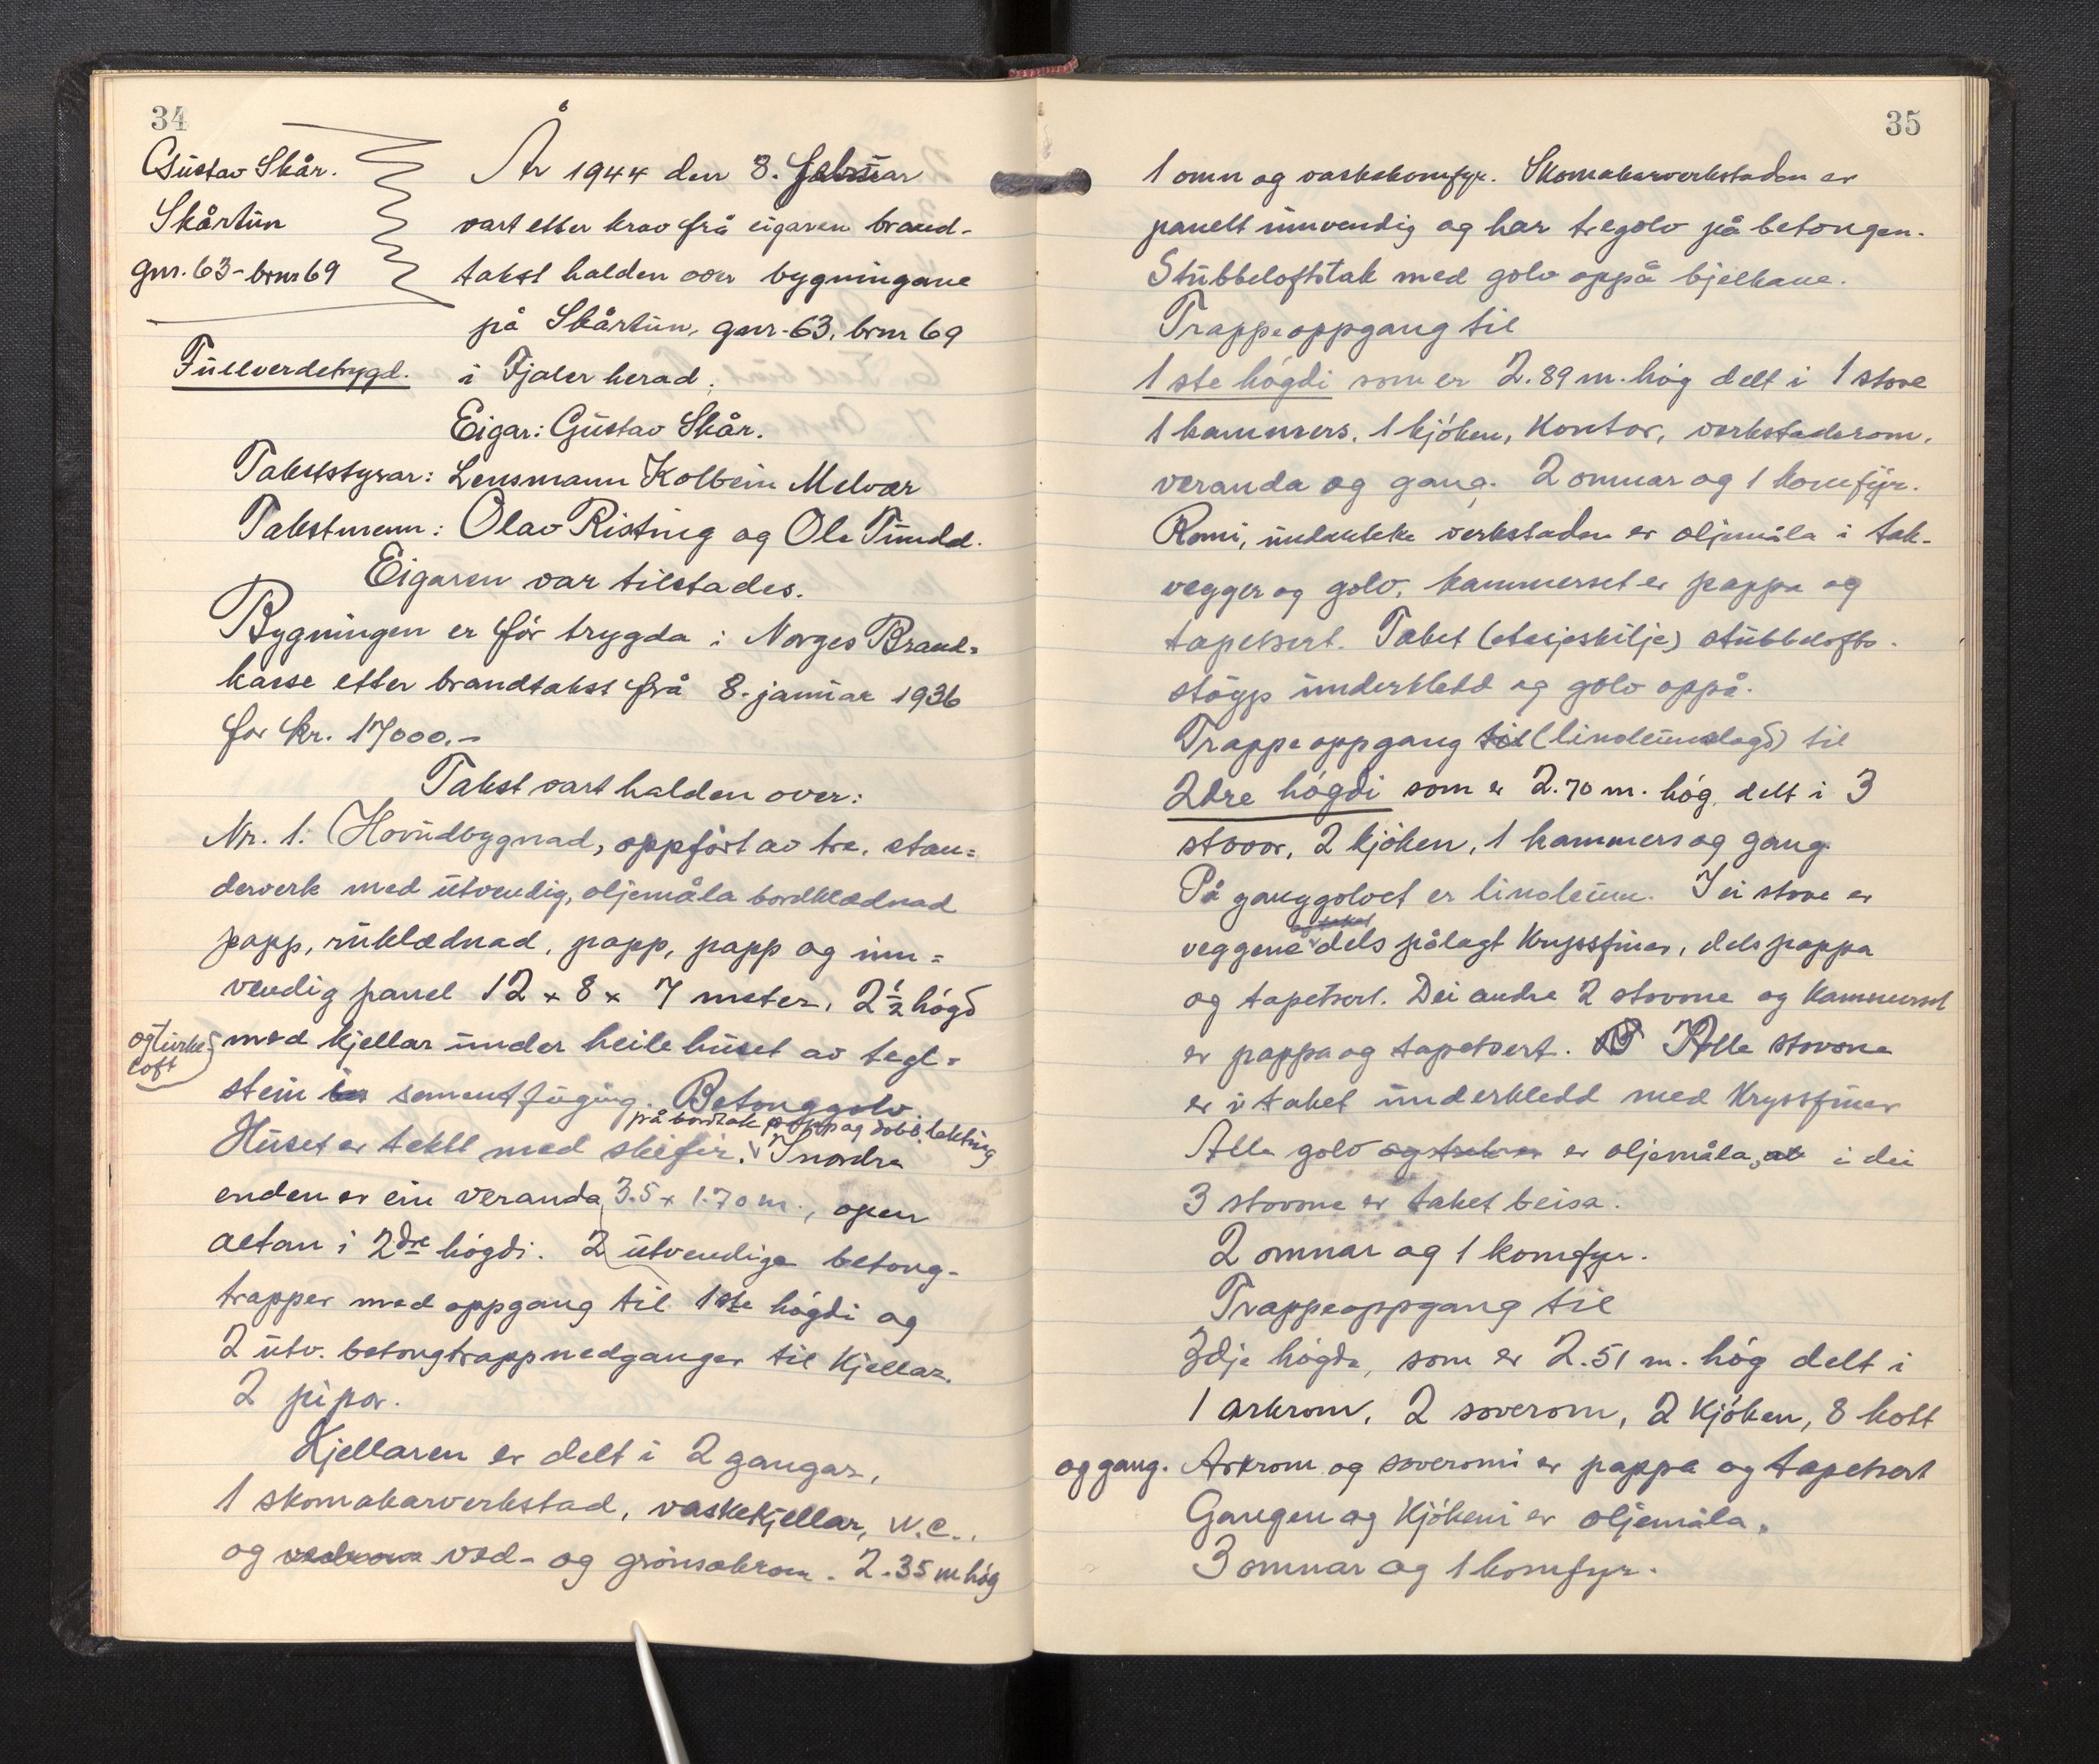 34
Gustav Skår.
Skårtun
gnr. 63 - brnr 69
Fullverdetrygd.
År 1944 den 8. februar
vart etter krav frå eigaren brand-
takst halden over bygningane
på Skårtun, gnr. 63, brnr 69
i Fjaler herad.
Eigar: Gustav Skår.
Takststyrar: Lensmann Kolbein Melvær
Takstmenn: Olav Risting og Ole Tundal.
Eigaren var tilstades.
Bygningen er før trygda i Norges Brand-
kasse etter brandtakst frå 8. januar 1936
for kr. 17000.-
Takst vart halden over:
Nr. 1: Hovudbygnad, oppført av tre, stan=
derverk med utvendig, oljemåla bordklædnad
papp, ruklædnad, papp, papp og inn=
vendig panel 12 x 8 x 7 meter. 2 1/2 høgd
og turke-
loft
med kjellar under heile huset av tegl=
stein i sementfuging. Betonggolv.
på bordtak papp og dobb. lekting
Huset er tekt med skifer. I nordre
enden er ein veranda 3.5 x 1.70 m., open
altan i 2dre høgdi. 2 utvendige betong-
trapper med oppgang til 1ste høgdi og
2 utv. betongtrappnedganger til kjellar.
2 pipor.
Kjellaren er delt i 2 gangar,
1 skomakarverkstad, vaskekjellar, W.C.,
og vedrom ved- og grønsakrom. 2.35 m høg
35
1 omn og vaskekomfyr. Skomakarverkstaden er
panelt innvendig og har tregolv på betongen.
Stubbeloftstak med golv oppå bjelkane.
Trappeoppgang til
1ste høgdi som er 2.89 m. høg delt i 1 stove
1 kammers, 1 kjøken, kontor, verkstadsrom,
veranda og gang. 2 omnar og 1 komfyr.
Romi, undantekke verkstaden er oljemåla i tak-
vegger og golv, kammerset er pappa og
tapetsert. Taket (etasjeskilje) stubblofts-
støyp underkledd og golv oppå.
Trappeoppgang til (linoleumslagd) til
2dre høgdi som er 2.70 m. høg, delt i 3
stovor, 2 kjøken, 1 kammers og gang.
På ganggolvet er linoleum. I ei stove er
og taket
veggene dels pålagt kryssfiner, dels pappa
og tapetsert. Dei andre 2 stovone og kammerset
er pappa og tapetsert. Alle stovone
er i taket underkledd med kryssfiner
Alle golv og er oljemåla, i dei
3 stovone er taket beisa.
2 omnar og 1 komfyr.
Trappeoppgang til
3dje høgde, som er 2.51 m. høg delt i
1 arkrom, 2 soverom, 2 kjøken, 8 kott
og gang. Arkrom og soveromi er pappa og tapetsert
Gangen og kjøkeni er oljemåla.
3 omnar og 1 komfyr.